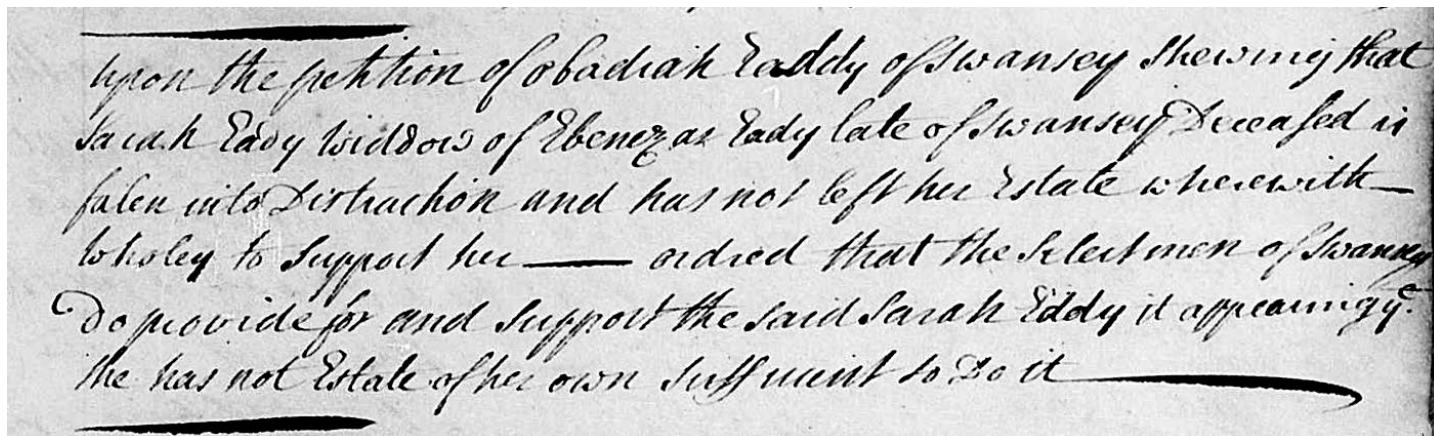 upon the petition of obadiah Eaddy of Swansey Shewing that
Sarah Eddy Widdow of Ebenezar Eady late of Swansey Deceased is
falen into Distraction and has not left her Estate wherewith
wholey to Support her — ordred that the Select men of Swansey
Do provide for and Support the said Sarah Eddy it appearing yt
she has not Estate of her own Suffucient to Do it